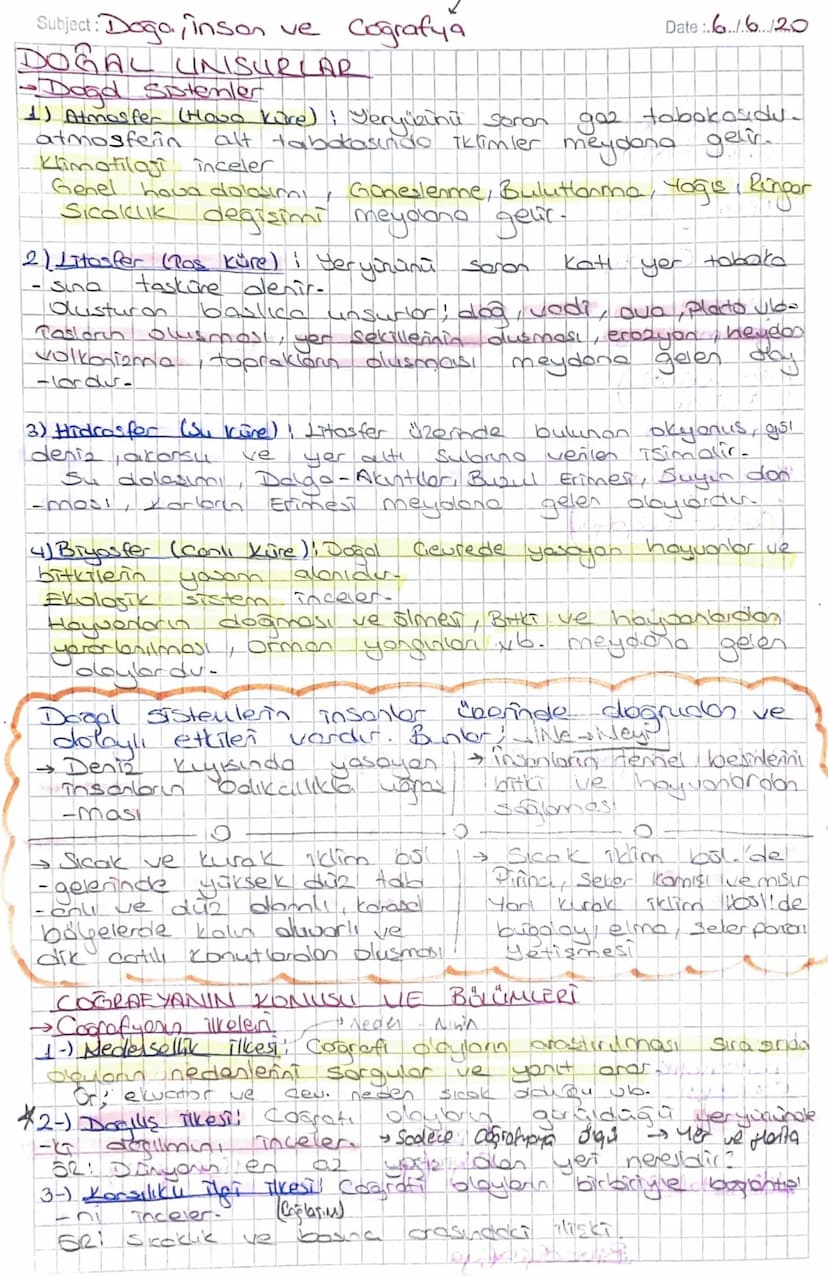 Subject: Doğa, insan ve Coğrafya
Date: 6/6/20
DOĞAL UNSURLAR
→Doğal Sistemler
1) Atmosfer (Hava Küre) : Yeryüzünü saran gaz tabakasıdır.
atmosferin alt tabakasında iklimler meydana gelir.
Klimatiloji inceler
Genel hava dolaşımı, Güneşlenme, Bulutlanma, Yağış, Rüzgar
Sıcaklık değişimi meydana gelir.
2) Litosfer (Taş Küre) : Yeryüzünü saran katı yer tabaka
-sına taşküre denir.
Oluşturan başlıca unsurlar; dağ, vadi, ova, plato vb.
Taşların oluşması, yer şekillerinin oluşması, erozyon, heyelan
volkanizma, toprakların oluşması meydana gelen olay
-lardır.
3) Hidrosfer (Su Küre) : Litosfer üzerinde bulunan okyanus, göl
deniz, akarsu ve yer altı sularına verilen isimdir.
Su dolaşımı, Dalga-Akıntılar, Buzul Erimesi, Suyun don
-ması, Karların Erimesi meydana gelen olaylardır.
4) Biyosfer (Canlı Küre) : Doğal Çevrede yaşayan hayvanlar ve
bitkilerin yaşam alanıdır.
Ekolojik sistem inceler.
Hayvanların doğması ve ölmesi, Bitki ve hayvanlardan
yararlanılması, orman yangınları vb. meydana gelen
olaylardır.
Doğal sistemlerin insanlar üzerinde doğrudan ve
dolaylı etkileri vardır. Bunlar; Ne → Neyi
→ Deniz kıyısında yaşayan
insanların balıkçılıkla uğraş
-ması
→ insanların temel besinlerini
bitki ve hayvanlardan
sağlaması
→ Sıcak ve kurak iklim böl
-gelerinde yüksek düz tab
-anlı ve düz damlı, karasal
bölgelerde kalın duvarlı ve
dik çatılı konutlardan oluşması
→ Sıcak iklim böl.'de
Pirinç, şeker kamışı ve mısır
Yarı kurak iklim böl.'de
buğday, elma, şeker pancarı
Yetişmesi
COĞRAFYANIN KONUSU VE BÖLÜMLERİ
→Coğrafyanın ilkeleri
→Neden Niçin
1-) Nedensellik ilkesi: Coğrafi olayların araştırılması sırasında
olayların nedenlerini sorgular ve yanıt arar.
Ör; ekvator ve çev. neden sıcak olduğu vb.
*2-) Dağılış ilkesi: Coğrafi olayların görüldüğü yeryüzünde
-ki dağılımını inceler. → Sadece coğrafyaya özgü → Yer ve Harita
ÖR: Dünyanın en az olan yeri neresidir?
3-) Karşılıklı ilgi ilkesi: Coğrafi olayların birbiriyle bağlantısı
-nı inceler.
ÖR: Sıcaklık ve basınç arasındaki ilişki.